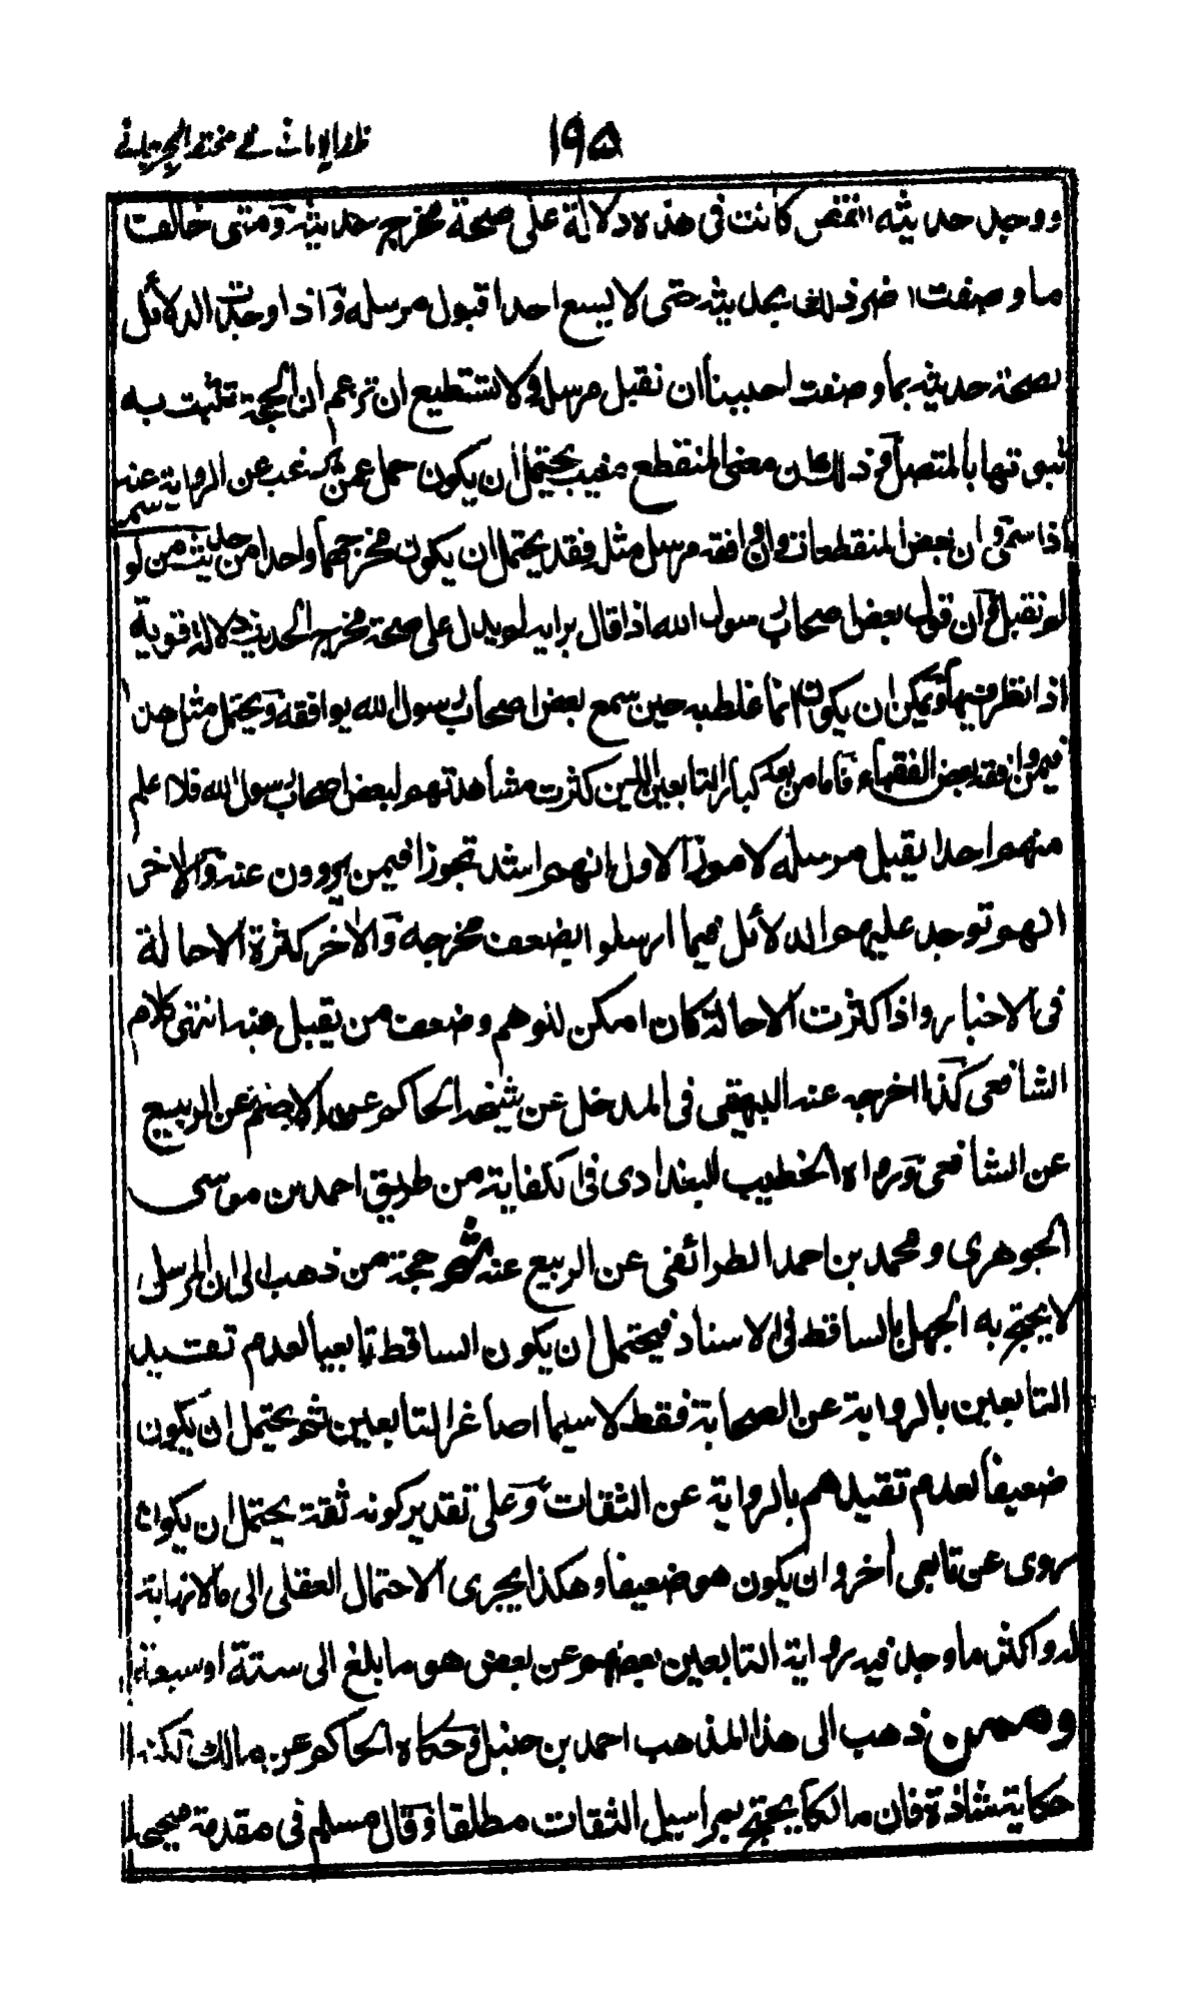 ظفر الامانی فی مختصر الجرجانی
۱۹۵
ووجد حدیثه انقص کانت فی هذه دلالة علی صحة مخرج حدیثه ومتی خالف
ما وصفت اضر ذلك بحدیثه حتی لا یسع احدا قبول مرسله واذا وجدت الدلائل
بصحة حدیثه بما وصفت احببنا ان نقبل مرسله ولا نستطیع ان نزعم ان الحجة تثبت به
ثبوتها بالمتصل وذلك ان معنی المنقطع مغیب یحتمل ان یکون حمل عمن یرغب عن الروایة عنه
اذا سمی وان بعض المنقطعات وان وافقه مرسل مثله فقد یحتمل ان یکون مخرجهما واحدا من حدیث من لو سمی
لم نقبل وان قول بعض اصحاب رسول الله اذا قال برایه لو یدل علی صحة مخرج الحدیث دلالة قویة
اذا نظر فیها ویمکن ان یکون انما غلط به حین سمع بعض اصحاب رسول الله یوافقه ویحتمل مثل هذا
فیمن وافقه بعض الفقهاء فاما من بعد کبار التابعین الذین کثرت مشاهدتهم لبعض اصحاب رسول الله فلا اعلم
منهم احدا یقبل مرسله لامور الاول انهم اشد تجوزا فیمن یروون عنه والاخر
انهم توجد علیهم الدلائل فیما ارسلوا بضعف مخرجه والاخر کثرة الاحالة
فی الاخبار واذا کثرت الاحالة کان امکن للوهم وضعف من یقبل عنه انتهی کلام
الشافعی کذا اخرجه عنه البیهقی فی المدخل عن شیخه الحاکم عن الاصم عن الربیع
عن الشافعی ورواه الخطیب البغدادی فی الکفایة من طریق احمد بن موسی
الجوهری ومحمد بن احمد الطرائفی عن الربیع عنه ثم حجة من ذهب الی ان المرسل
لا یحتج به الجهل بالساقط فی الاسناد فیحتمل ان یکون الساقط تابعیا لعدم تقیید
التابعین بالروایة عن الصحابة فقط لا سیما اصاغر التابعین ثم یحتمل ان یکون
ضعیفا لعدم تقیدهم بالروایة عن الثقات وعلی تقدیر کونه ثقة یحتمل ان یکون
روی عن تابعی آخر وان یکون هو ضعیفا وهکذا یجری الاحتمال العقلی الی ما لا نهایة
له واکثر ما وجد فیه روایة التابعین بعضهم عن بعض هو ما بلغ الی ستة او سبعة
وممن ذهب الی هذا المذهب احمد بن حنبل وحکاه الحاکم عن مالك لکنه
حکایة شاذة فان مالکا یحتج بمراسیل الثقات مطلقا وقال مسلم فی مقدمة صحیحه